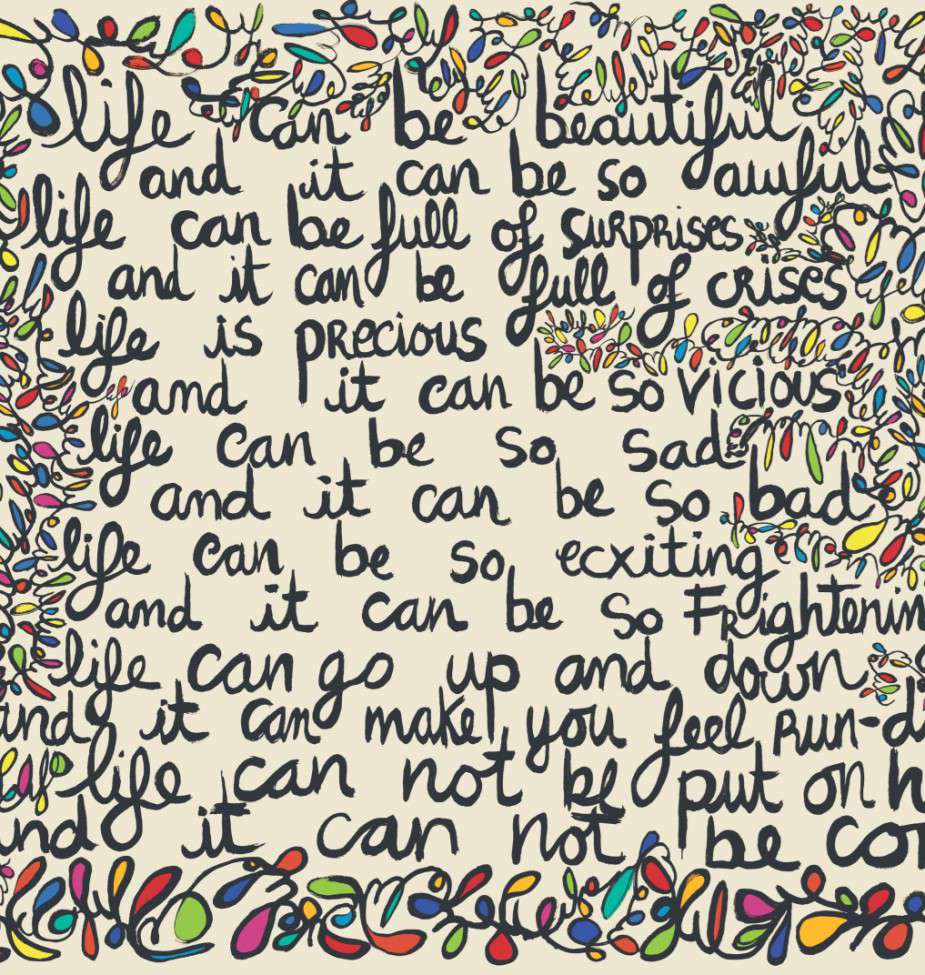 life can be beautiful
and it can be so awful
life can be full of surprises
and it can be full of crises
life is precious
and it can be so vicious
life can be so sad
and it can be so bad
life can be so ecxiting
and it can be so Frightenin
life can go up and down
and it can make you feel Run-d
life can not be put on h
and it can not be con